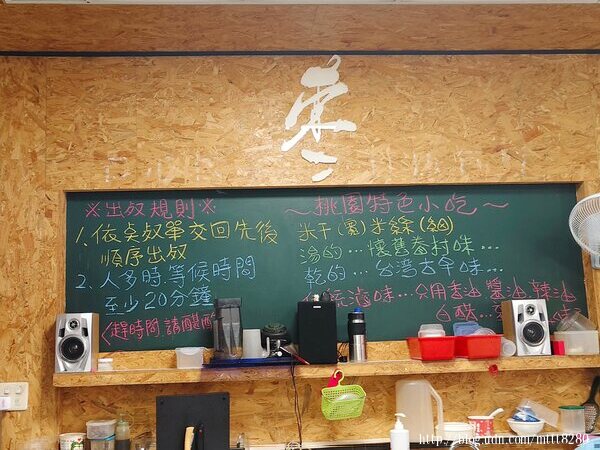 束
※出餐規則※
1、依桌餐單交回先後
順序出餐
2、人多時.等候時間
至少20分鐘
<趕時間.請
～桃園特色小吃～
米干(寬)米絲(細)
湯的...懷舊眷村味...
乾的...台灣古早味...
統滷味...只用香油.醬油.辣油
白醋...
味
http://blog.udn.com/mttt8280